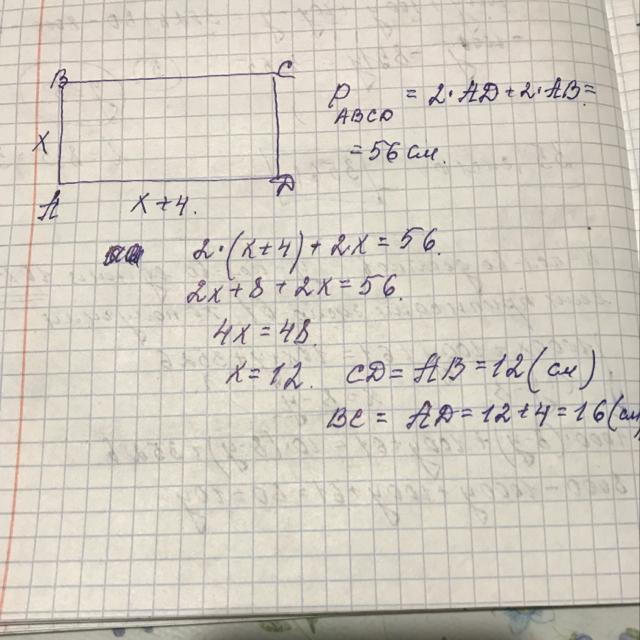 B C
P ABCD = 2·AD+2·AB=
X
=56 см.
A D
X+4.
2·(x+4)+2x=56.
2x+8+2x=56.
4x=48.
x=12. CD=AB=12(см)
BC= AD=12+4=16(см)